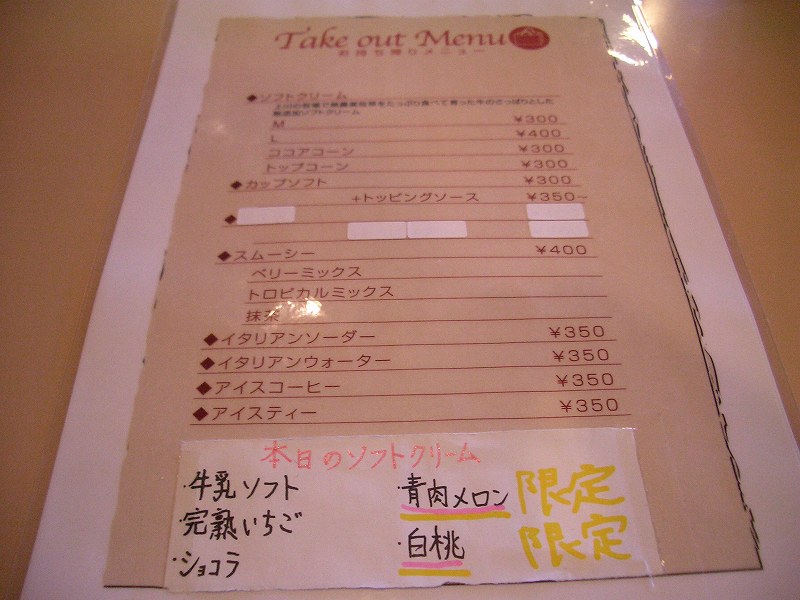 Take out Menu
お持ち帰りメニュー
◆ソフトクリーム
無添加ソフトクリーム
M ¥300
L ¥400
ココアコーン ¥300
トップコーン ¥300
◆カップソフト ¥300
+トッピングソース ¥350~
◆
◆スムージー ¥400
ベリーミックス
トロピカルミックス
抹茶
◆イタリアンソーダー ¥350
◆イタリアンウォーター ¥350
◆アイスコーヒー ¥350
◆アイスティー ¥350
本日のソフトクリーム
・牛乳ソフト
完熟いちご
・ショコラ
・青肉メロン 限定
・白桃 限定